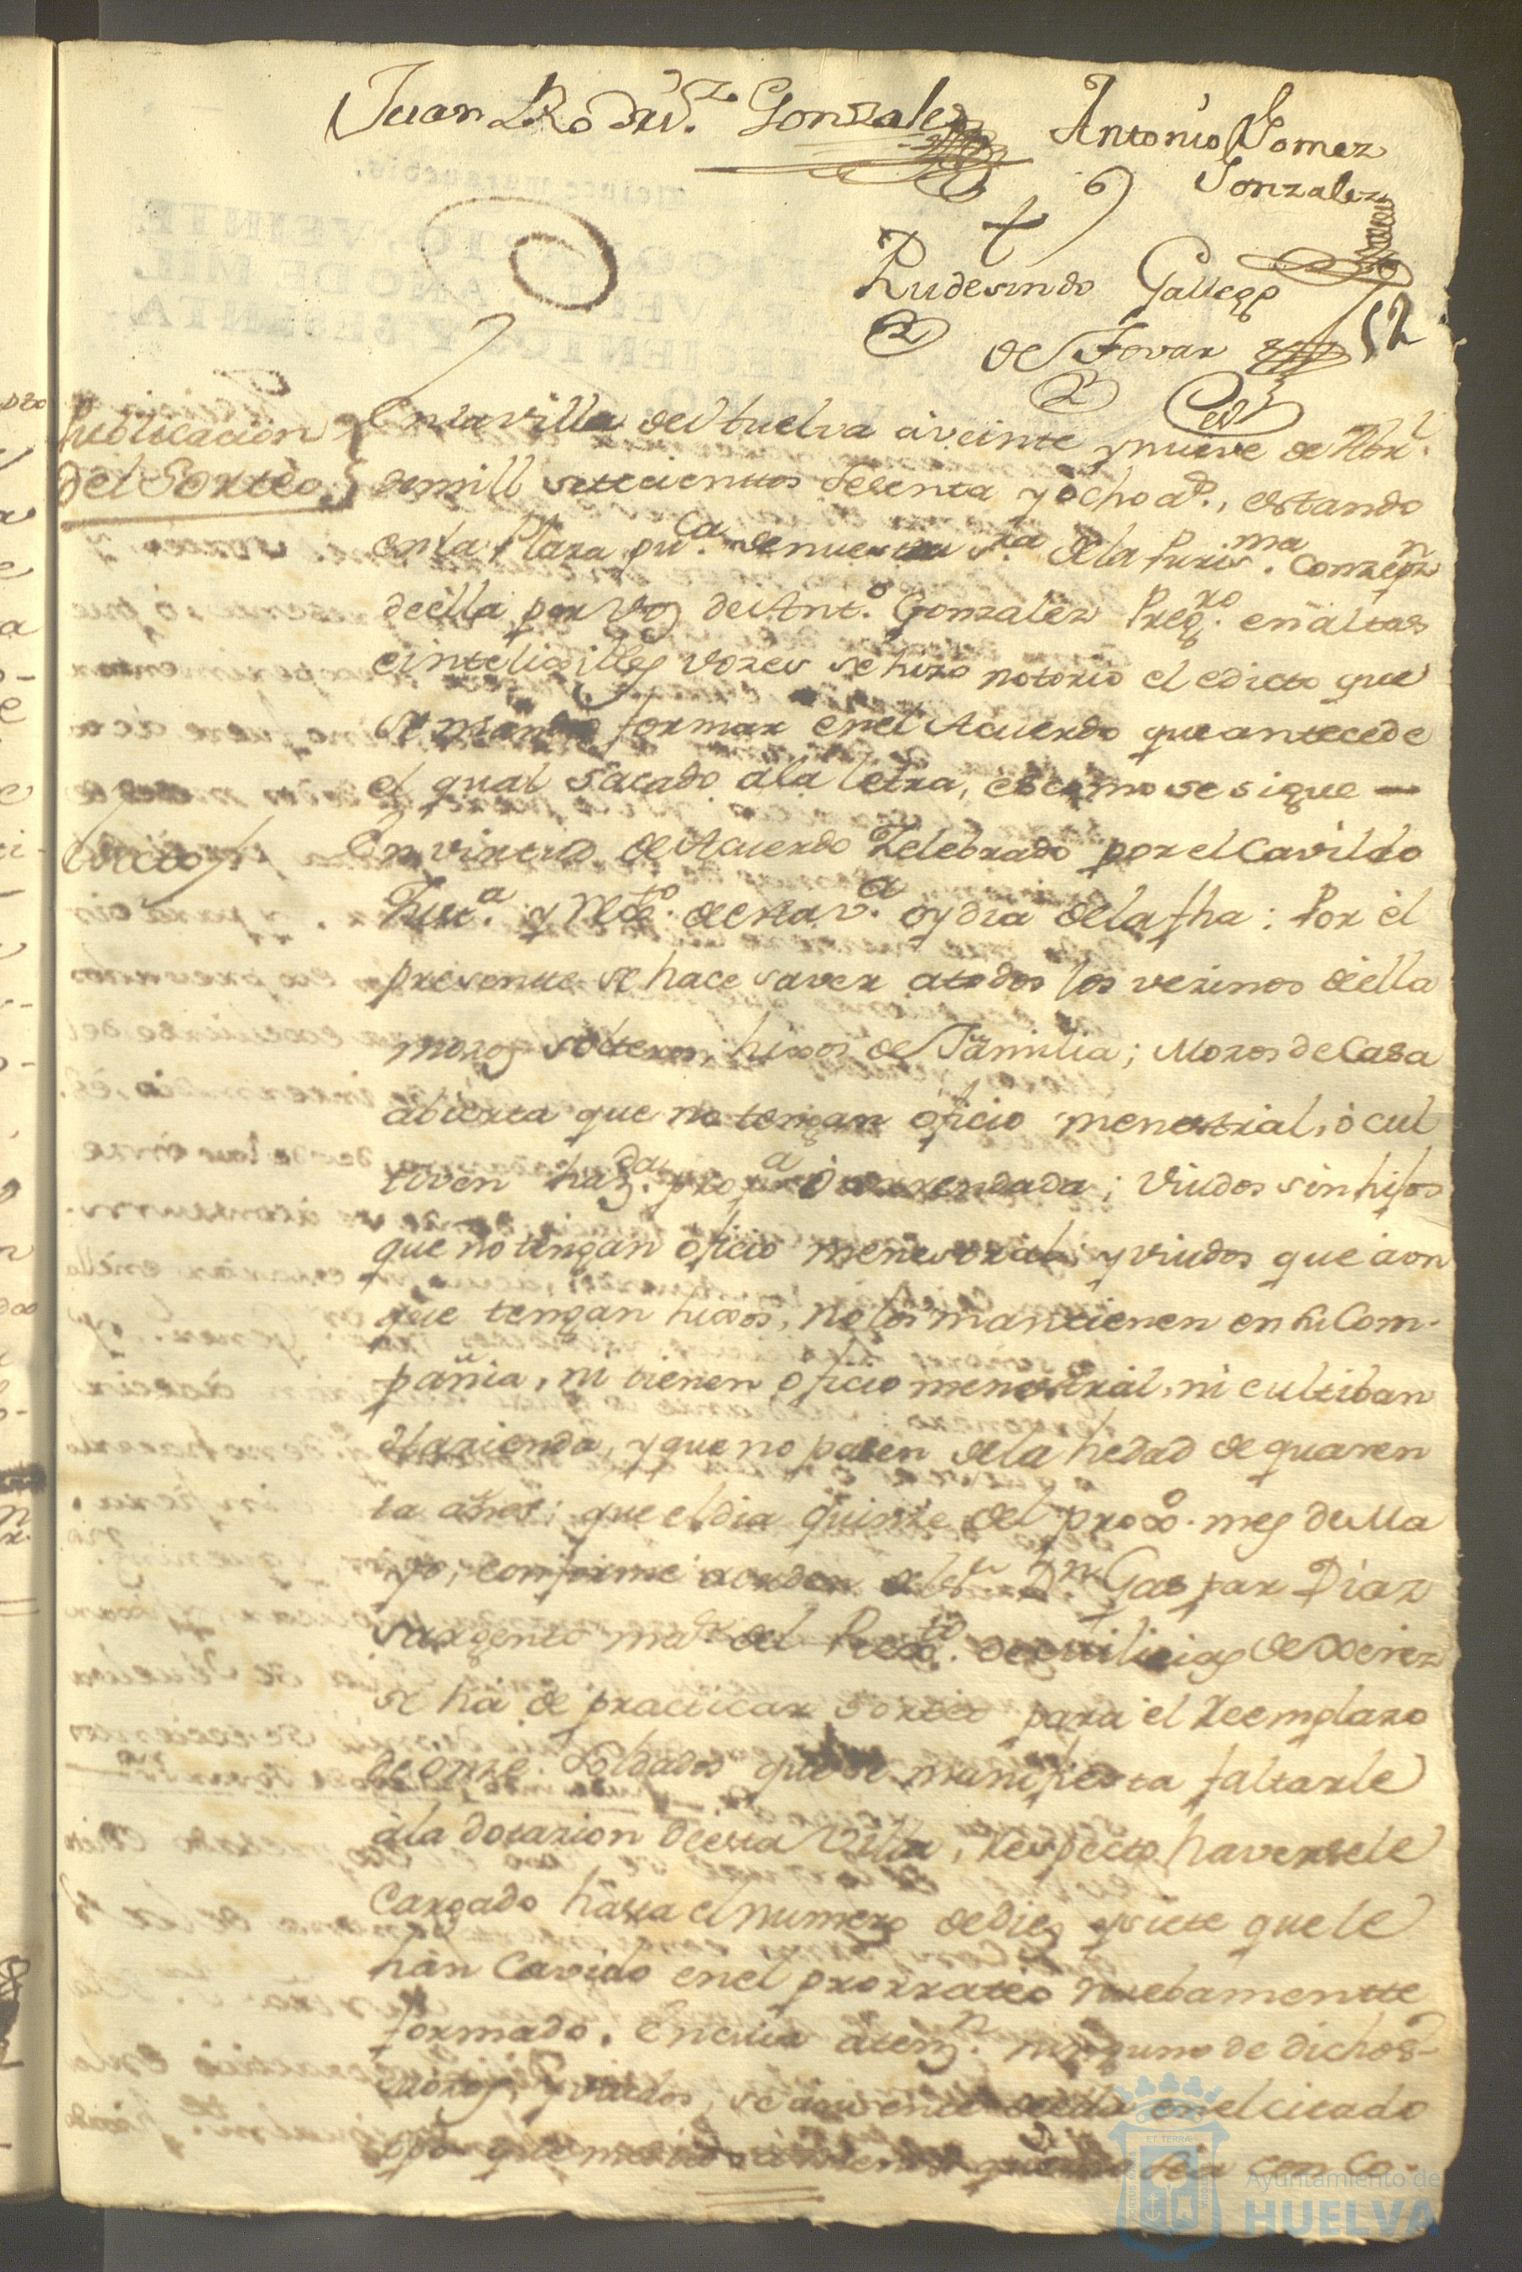 Juan Rodrig.z Gonzalez Antonio Gomez
Gonzalez
Rudesindo Gallego
de Tovar
52
Publicacion
del Sorteo
En la villa de Huelva à veinte y nueve de Abr.l
de mill settecienttos sesenta y ocho a.s, estando
en la Plaza pu.ca de nuestra S.ra de la Puris.ma Conzepz.n
de ella por voz de Ant.o Gonzalez Preg.ro en altas
e inteligibles vozes se hizo notorio el edicto que
se mando formar en el Acuerdo que antecede
el qual sacado a la letra, es como se sigue —
Edicto
En virtud de Acuerdo Zelebrado por el Cavildo
Just.a y Reg.to de esta v.a oy dia de la fha: Por el
presentte se hace saver a todos los vezinos de ella
mozos solteros, hixos de Familia; Mozos de Casa
abierta que no tengan oficio menestrial, ò cul
tiven haz.da prop.a ò arrendada; Viudos sin hijos
que no tengan oficio menestrial y viudos que aon
que tengan hixos, no los mantienen en su Com-
pañia, ni tienen oficio menestrial, ni cultiban
hazienda, y que no pasen de la hedad de quaren
ta años; que el dia quinze del prox.o mes de Ma
yo, conforme a orden del S.r D.n Gaspar Diaz
Sargento m.r del Rex.to de Milicias de Xerez
se ha de practicar sorteo para el Reemplazo
de onze Soldados que se manifiesta faltarle
à la dotazion de esta Villa, Respecto haversele
Cargado hasta el numero de diez y siete que le
hàn Cavido en el prorrateo nuebamentte
formado. En cuia aten.n ninguno de dichos
mozos, y viudos, se ausente de ella en el citado
dia con Co-
ET TERRÆ
Ayuntamiento de
HUELVA